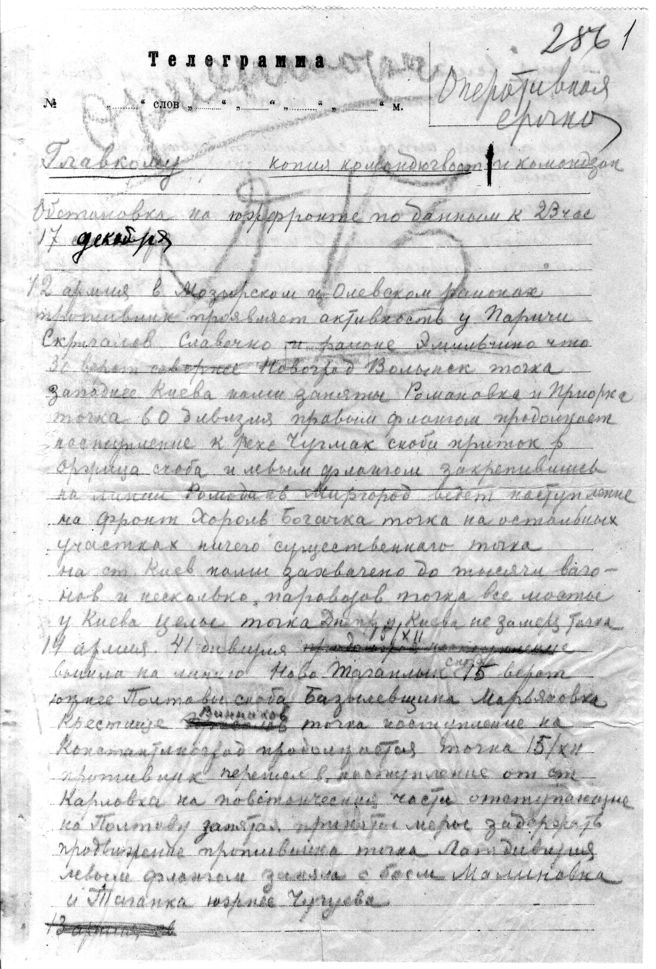 2861
Телеграмма
Оперативная
срочно
№ „ “ слов „ “ „ “ „ “ „ “ м.
Главкому копия и
Обстановка на южфронте по данным к 23 час
17 декабря
12 армия в Мозырском и Олевском районах
противник проявляет активность у Паричи
Скрыгалов Славечко и районе Эмильчино что
30 верст севернее Новоград Волынск точка
западнее Киева нами заняты Романовка и Приорка
точка 60 дивизия правым флангом продолжает
наступление к реке скоба приток р
Оржица скоба и левым флангом закрепившись
на линии Ромодан Миргород ведет наступление
на фронт Хороль Богачка точка на остальных
участках ничего существенного точка
на ст Киев нами захвачено до тысячи ваго-
нов и несколько паровозов точка все мосты
у Киева целы точка Днепр у Киева не замерз точка
15/XII
14 армия. 41 дивизия
вышла на линию Ново Таганлык скоба 15 верст
южнее Полтавы скоба Базылевщина Марьяновка
Крестище Винников точка наступление на
Константиноград продолжается точка 15/XII
противник перешел в наступление от ст
Карловка на повстанческие части отступающие
на Полтаву запятая приняты меры задержать
продвижение противника точка Латдивизия
левым флангом заняла с боем Малиновка
и Таганка южнее Чугуева
13 армия